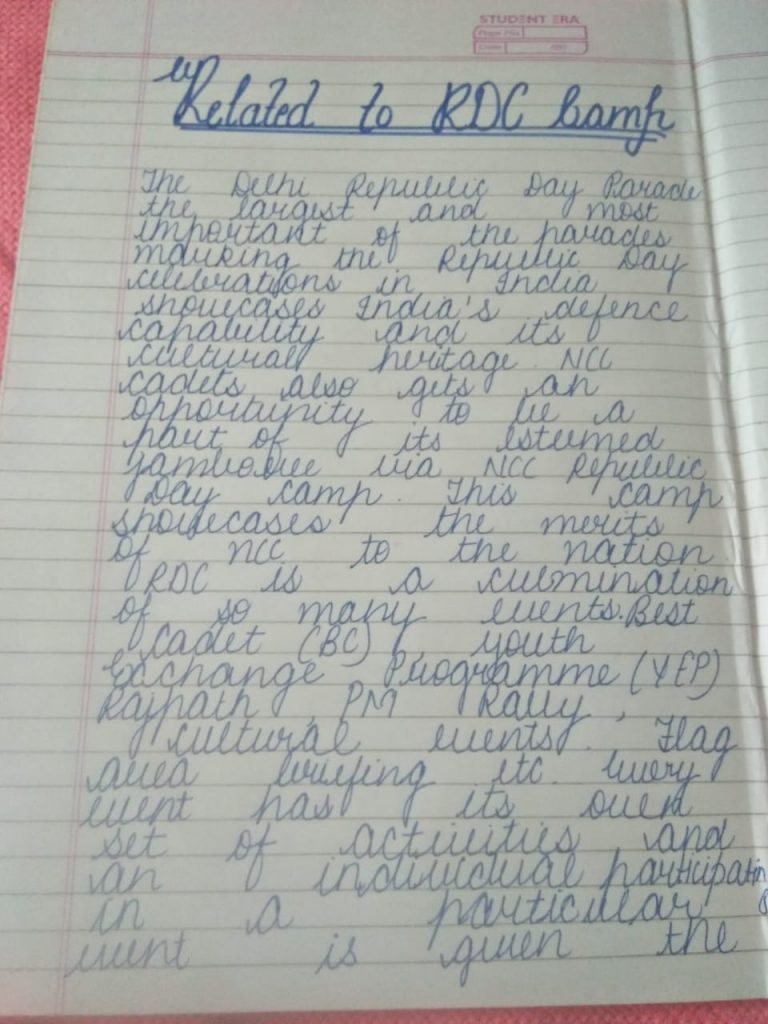 STUDENT ERA
Page No.
Date
Related to RDC Camp
The Delhi Republic Day Parade
the largest and most
important of the parades
marking the Republic Day
celebrations in India
showcases India's defence
capability and its
cultural heritage. NCC
cadets also gets an
opportunity to be a
part of its estumed
jamboree via NCC Republic
Day camp. This camp
showcases the merits
of NCC to the nation.
RDC is a culmination
of so many events. Best
Cadet (BC), youth
Exchange Programme (YEP)
Rajpath, PM Rally,
cultural events. Flag
area briefing etc. Every
event has its own
set of activities and
an individual participatin
in a particular
event is given the